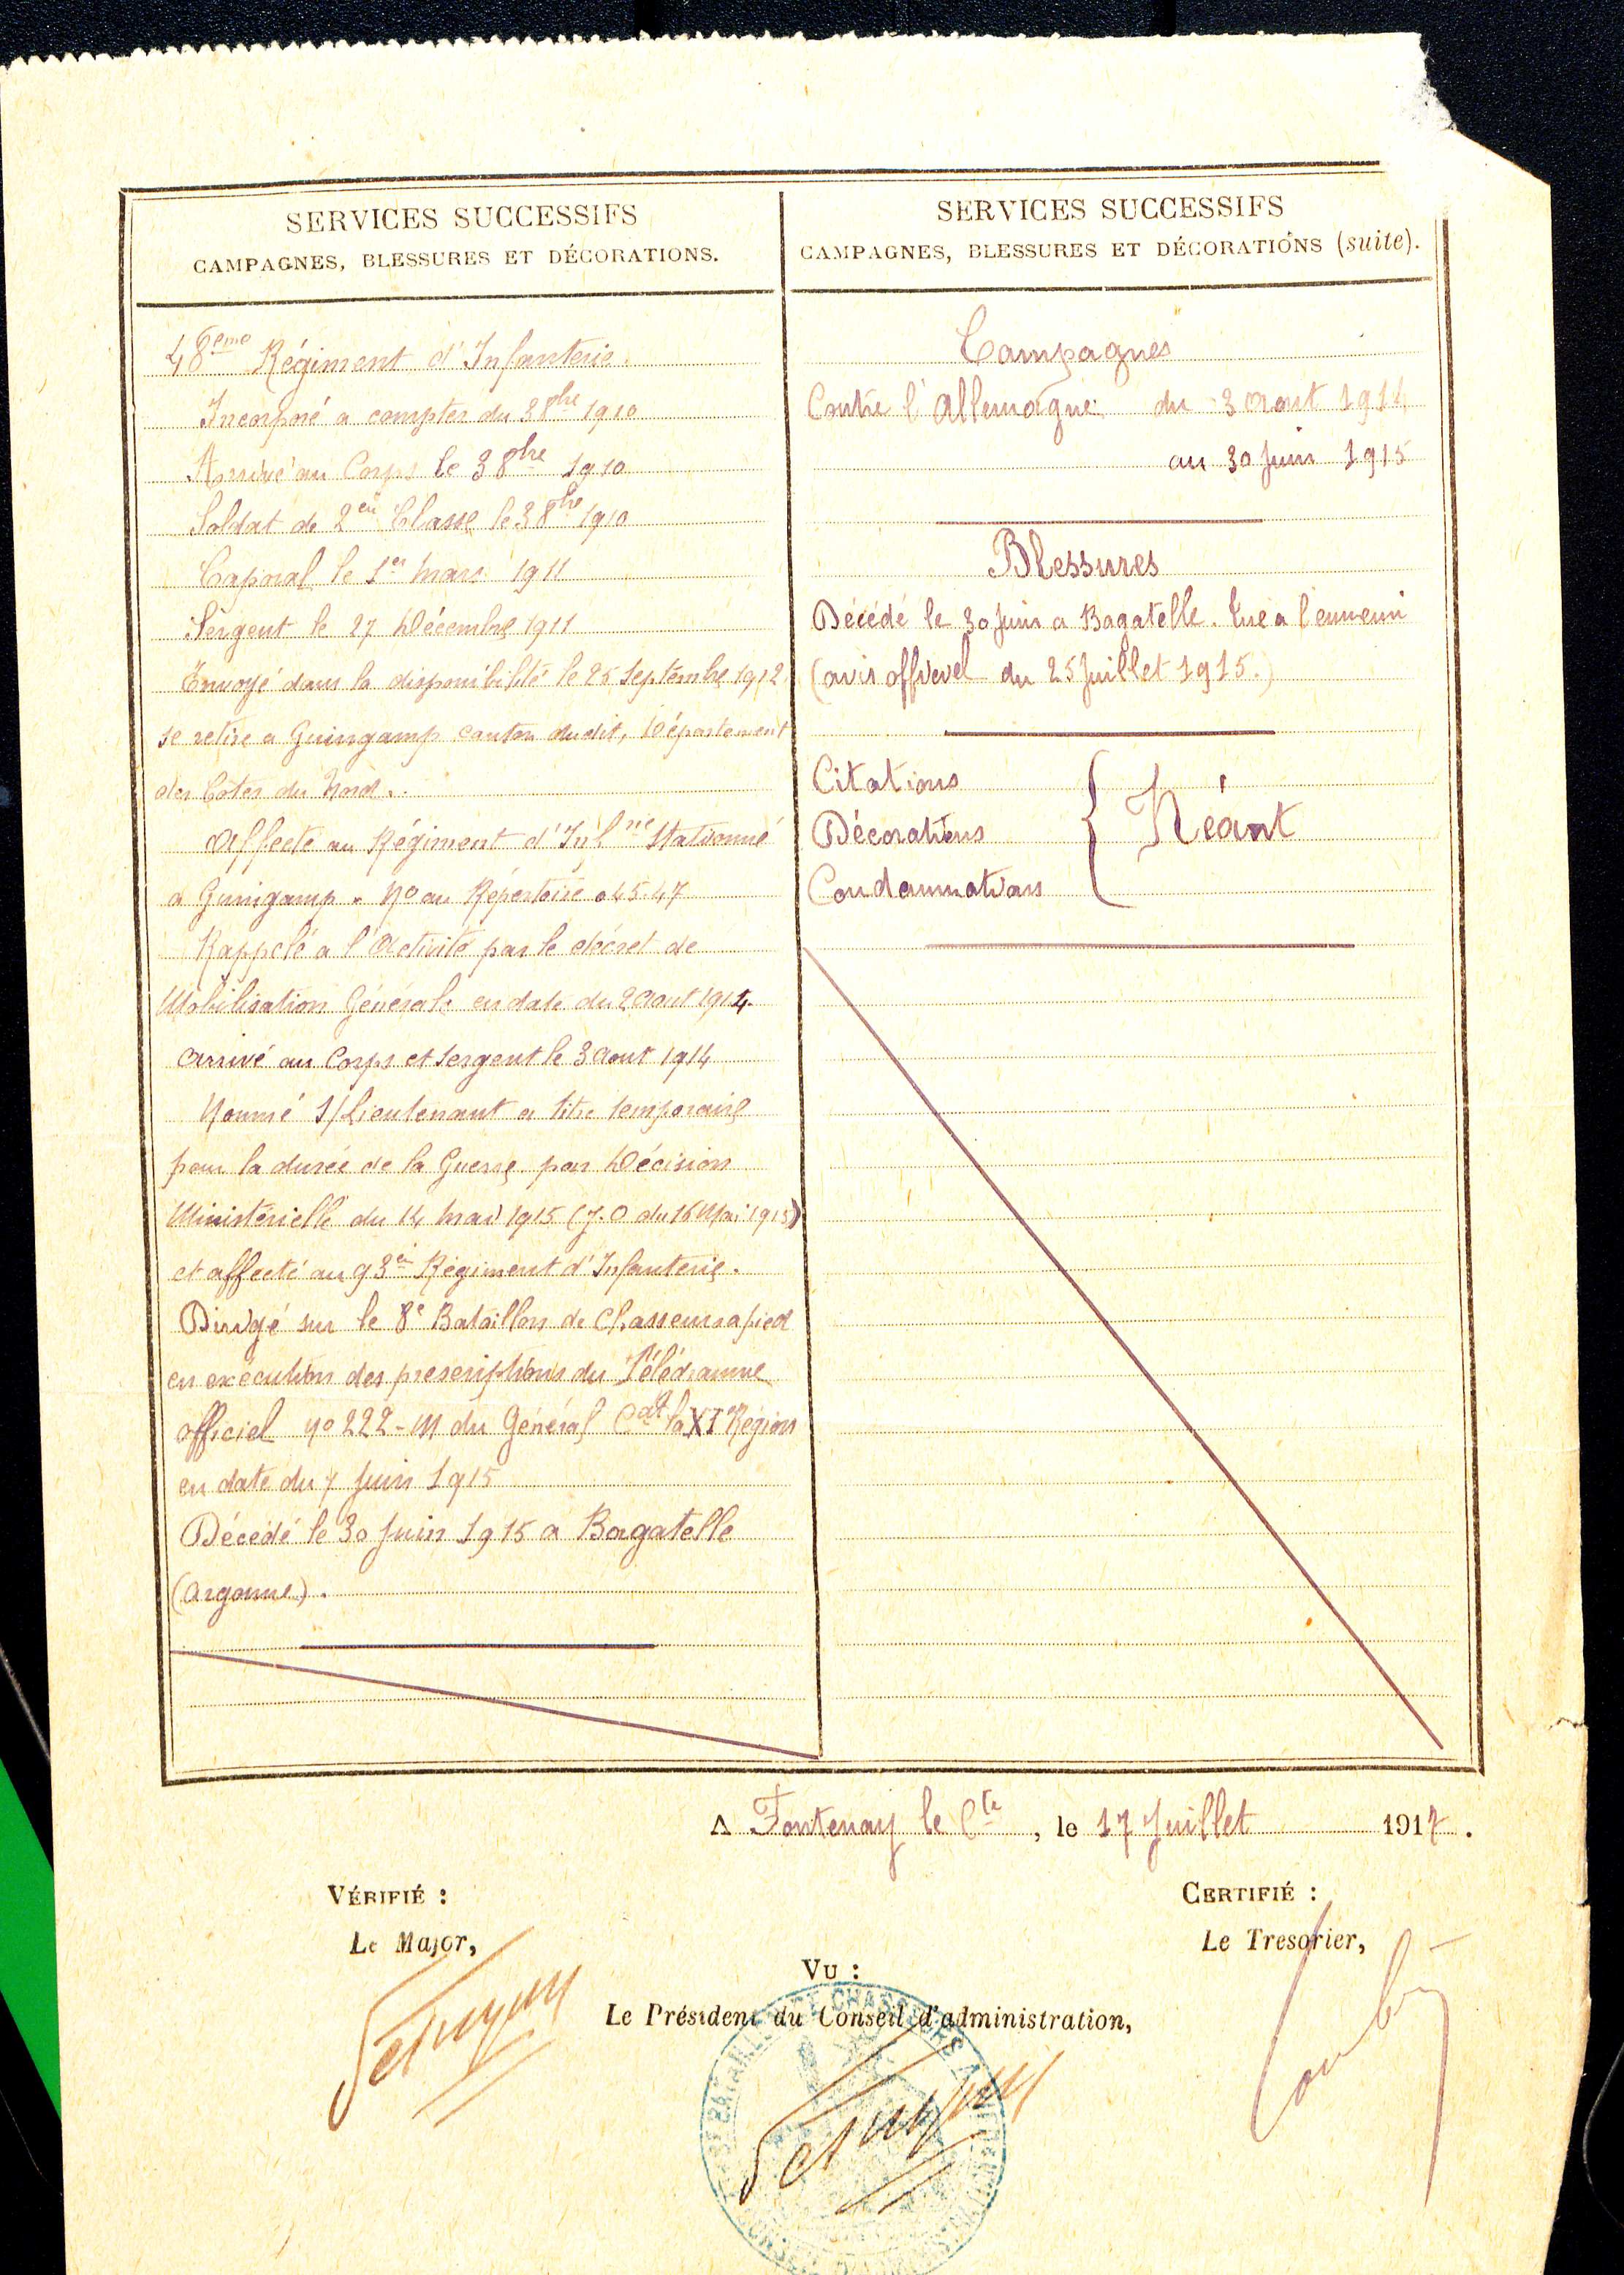 SERVICES SUCCESSIFS
CAMPAGNES, BLESSURES ET DÉCORATIONS.
48ème Régiment d'Infanterie.
Incorporé a compter du 3 8bre 1910
Arrivé au Corps le 3 8bre 1910
Soldat de 2eu Classe le 3 8bre 1910
Caporal le 1er Mars 1911
Sergent le 27 Décembre 1911
Envoyé dans la disponibilité le 25 Septembre 1912
se retire a Guingamp canton dudit, Département
des Cotes du Nord.
Affecté au Régiment d'Infrie Stationné
a Guingamp. No au Répertoire 045.47
Rappelé a l'Activité par le décret de
Mobilisation Générale en date du 2 Aout 1914
arrivé au Corps et Sergent le 3 Aout 1914
Nommé S/Lieutenant a titre temporaire
pour la durée de la Guerre par Décision
Ministérielle du 14 Mai 1915 (J.O du 16 Mai 1915)
et affecté au 93e Régiment d'Infanterie.
Dirigé sur le 8e Bataillon de Chasseurs a pied
en exécution des prescriptions du Télégramme
officiel No 222-M du Général Cdt la XIe Région
en date du 7 Juin 1915
Décédé le 30 Juin 1915 a Bagatelle
(Argonne).
SERVICES SUCCESSIFS
CAMPAGNES, BLESSURES ET DÉCORATIONS (suite).
Campagnes
Contre l'Allemagne: du 3 Aout 1914
au 30 Juin 1915
Blessures
Décédé le 30 Juin a Bagatelle. Tué a l'ennemi
(avis officiel du 25 Juillet 1915.)
Citations
Décorations { Néant
Condamnations
A Fontenay le Cte, le 17 Juillet 1917.
VÉRIFIÉ :
Le Major,
CERTIFIÉ :
Le Tresorier,
VU :
Le Président du Conseil d'administration,